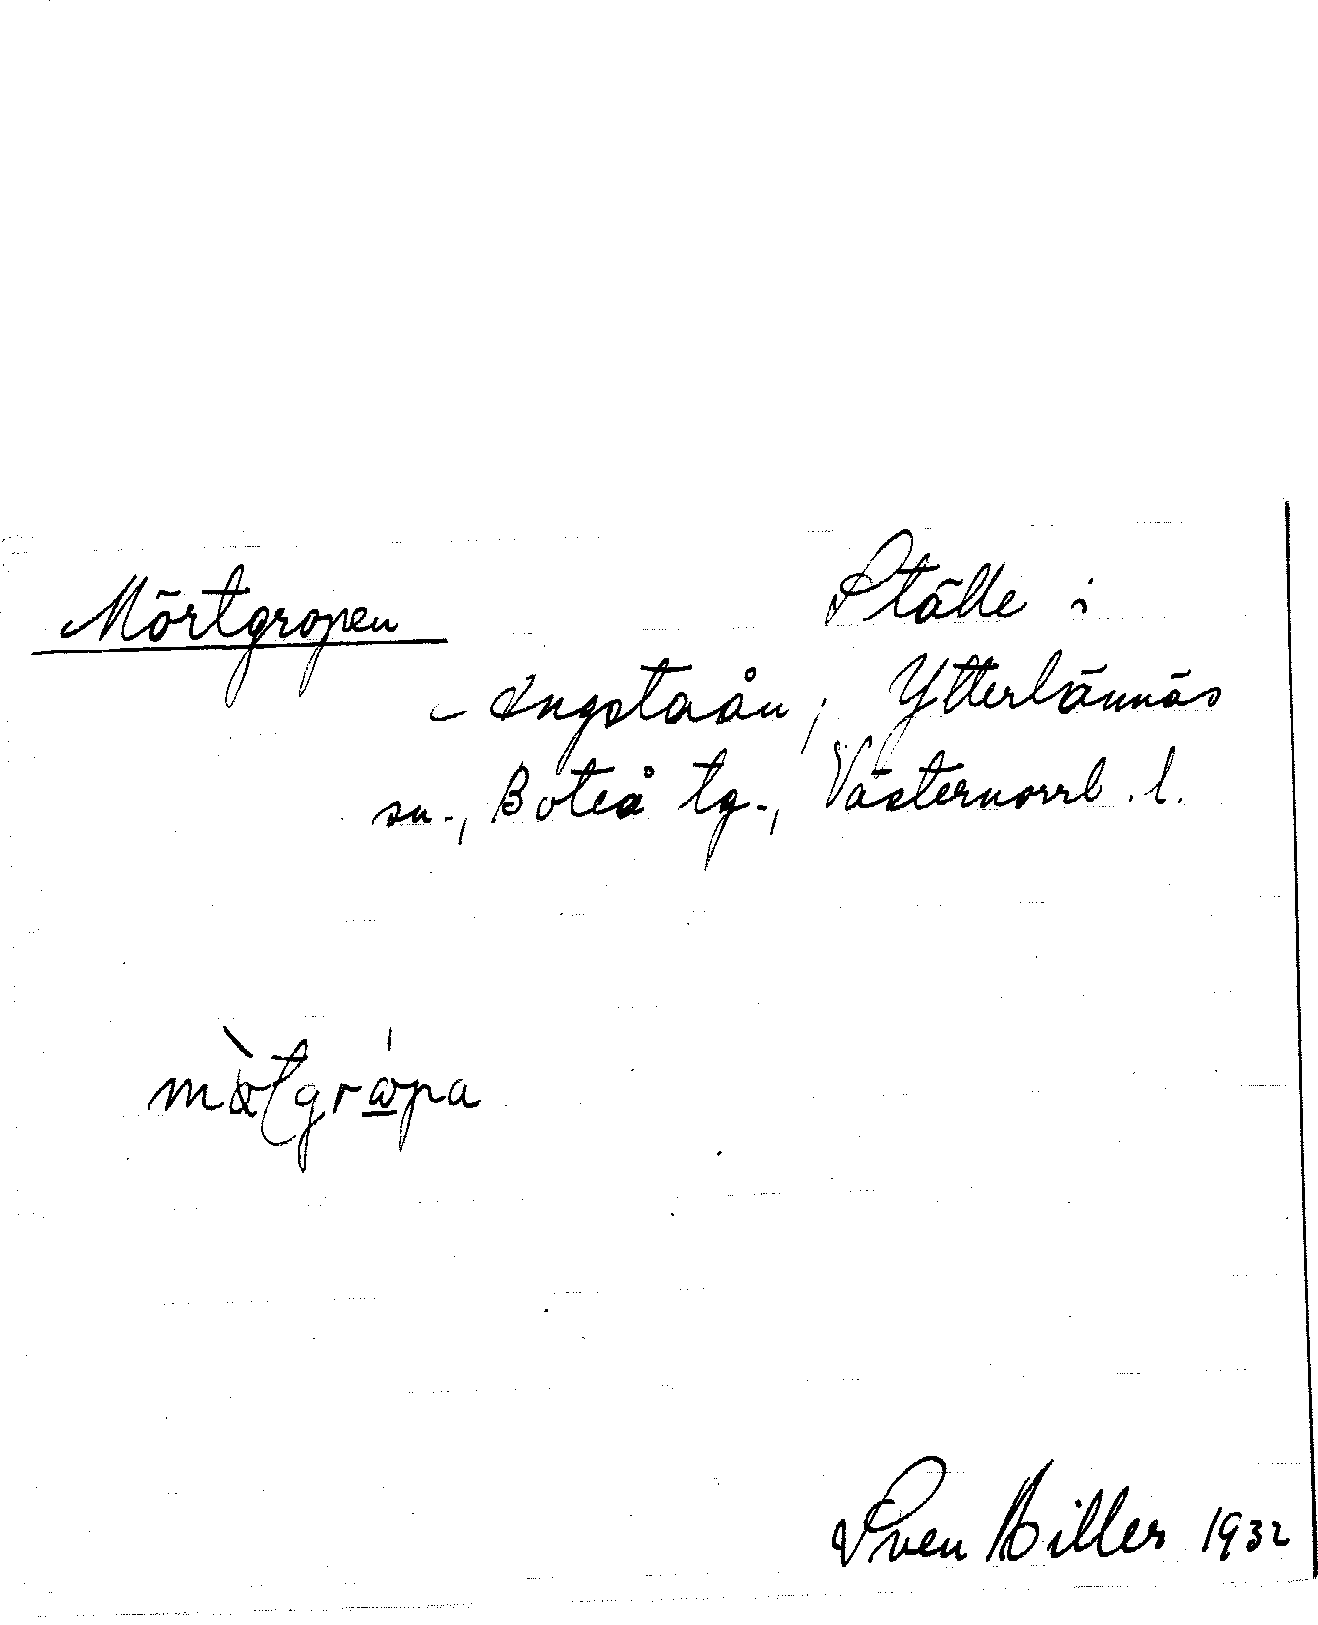 Mörtgropen Ställe i
Ingstaån, Ytterlännäs
sn., Boteå tg., Västernorrl. l.
Sven Hiller 1932